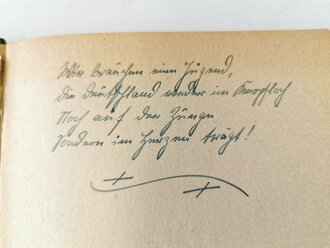 Wir brauchen eine Jugend,
die Deutschland weder im Knopfloch
Noch auf der Zunge
Sondern im Herzen trägt!